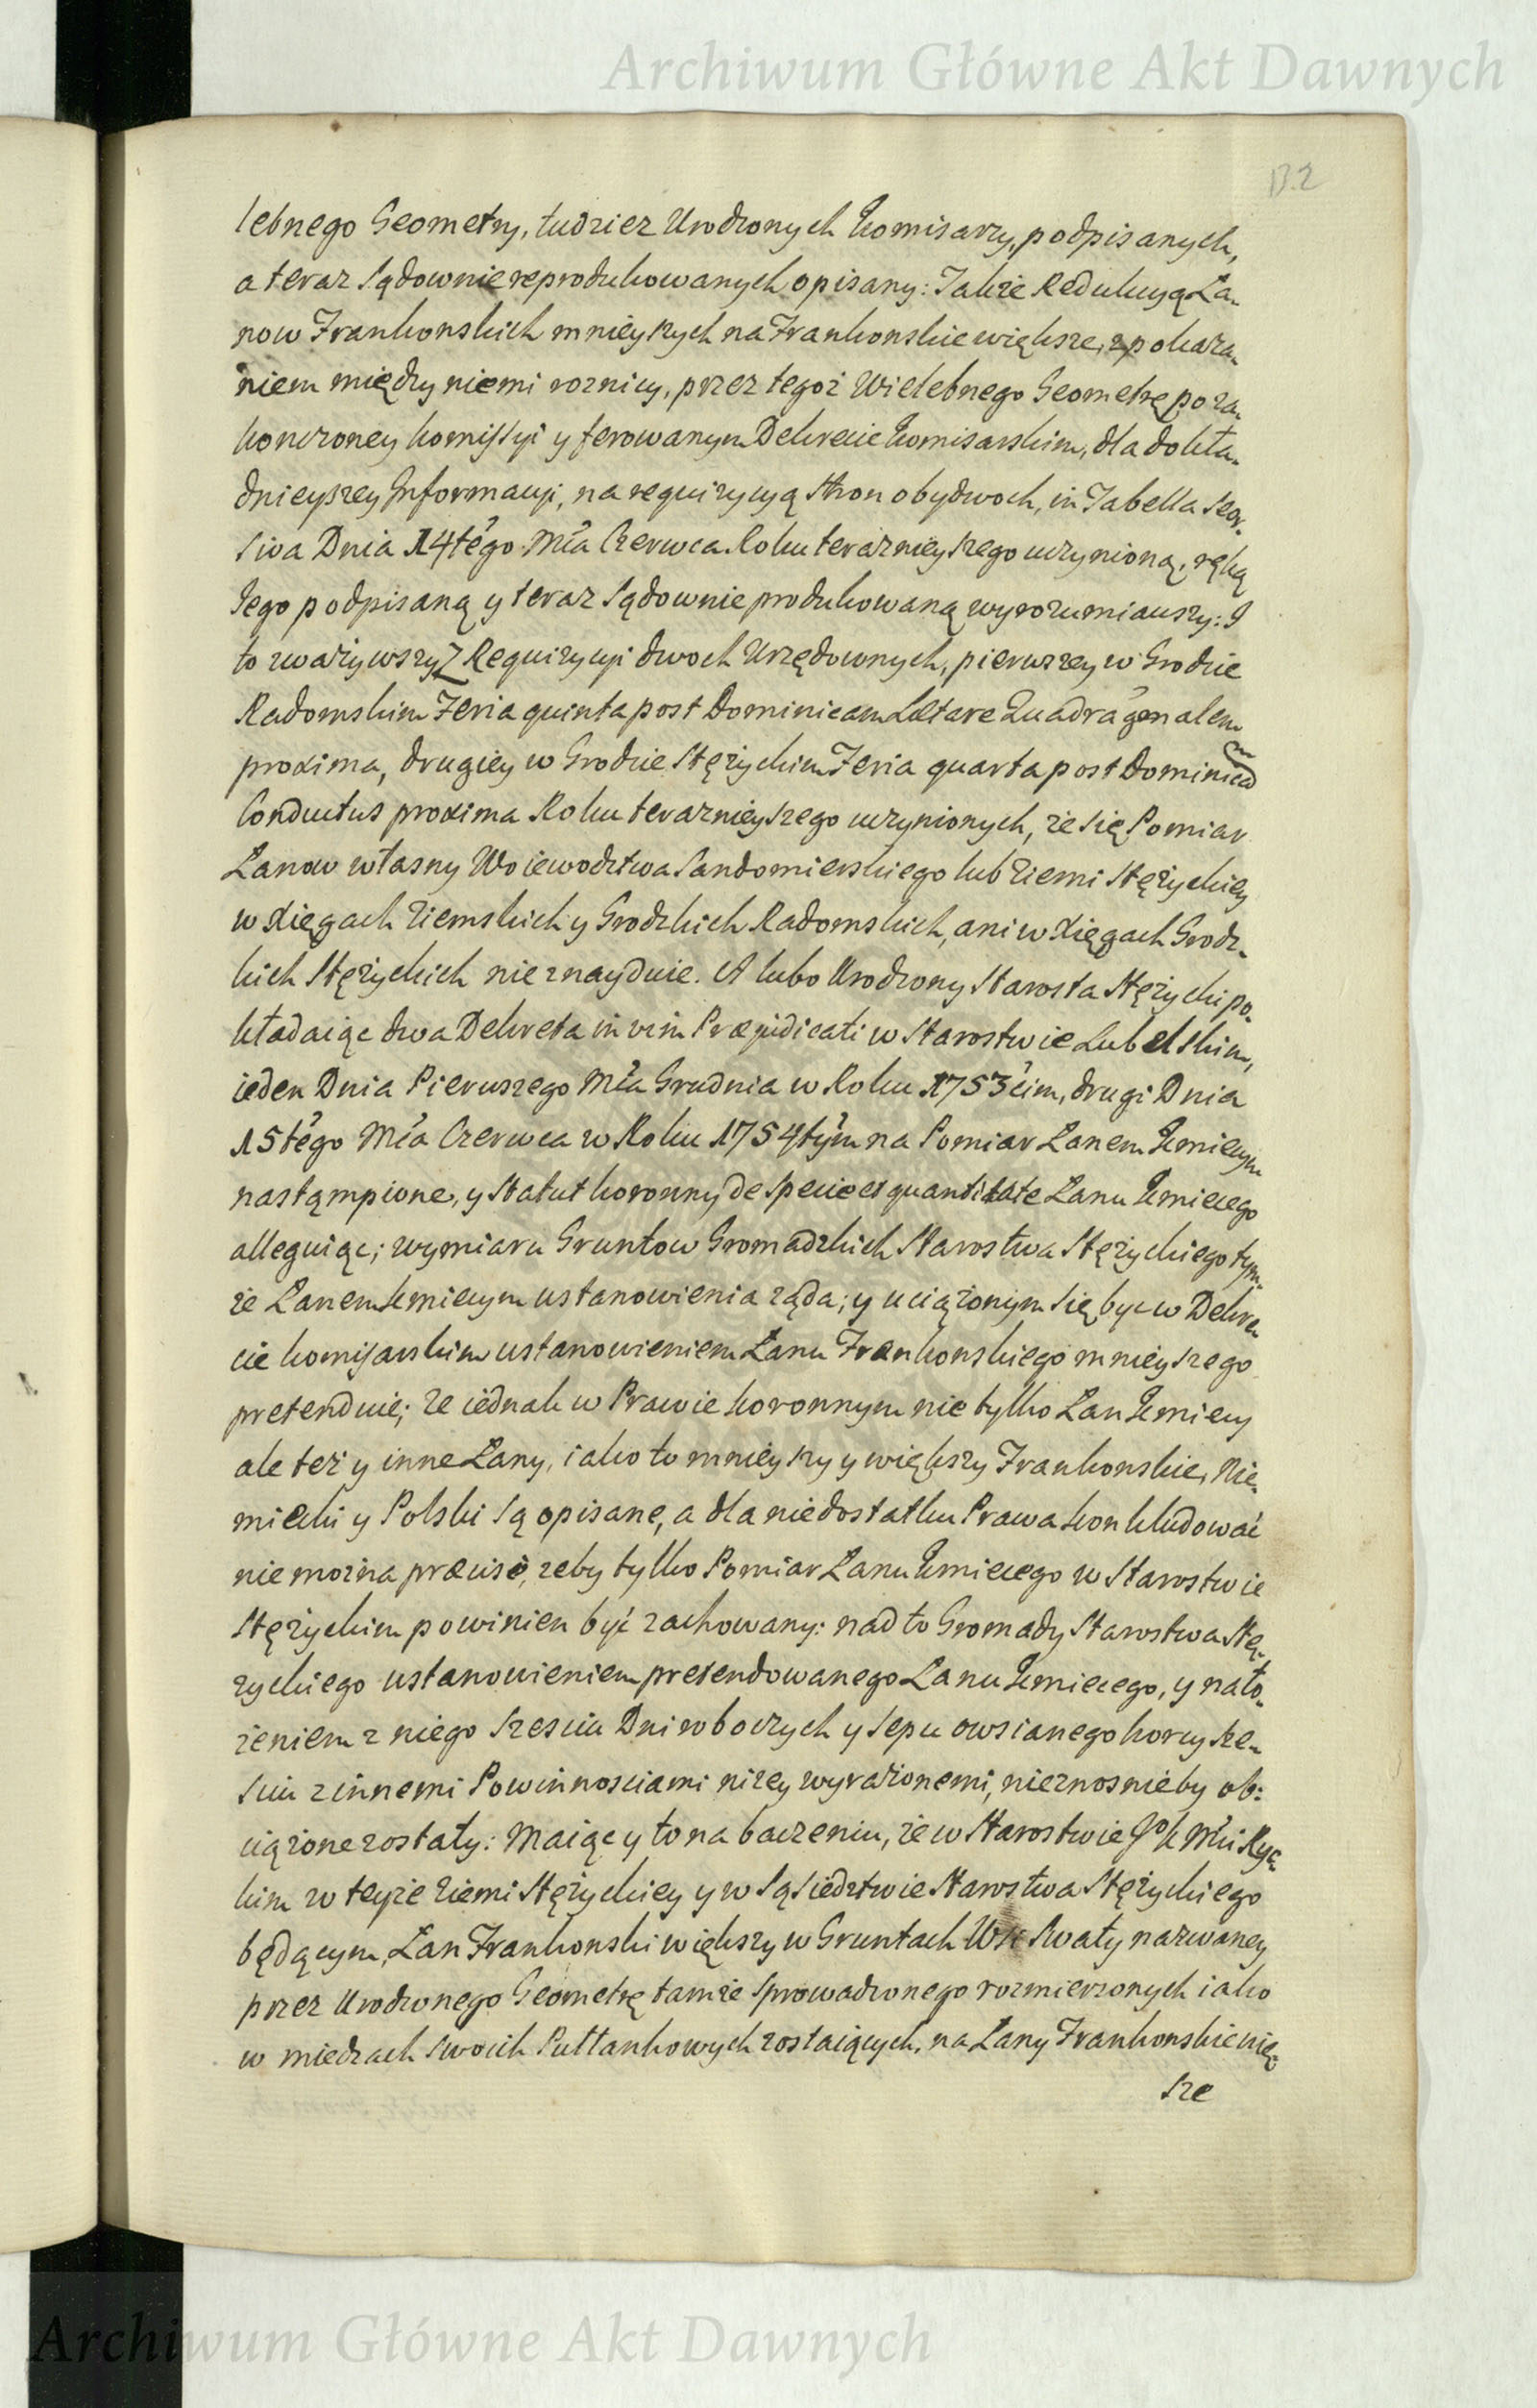 Archiwum Główne Akt Dawnych
132
lebnego Geometry, tudzież Urodzonych Komisarzy, podpisanych,
a teraz Sądownie reprodukowanych opisany: Także Redukcyą Ła-
now Frankonskich mnieyszych na Frankonskie większe, z pokaza-
niem między niemi roznicy, przez tegoż Wielebnego Geometrę po za-
konczoney Komissyi y ferowanym Dekrecie Komisarskim, dla dokła-
dnieyszey Informacyi, na requizycyą stron obydwoch, in Tabella Seor-
siva Dnia 14tego Mca Czerwca Roku teraznieyszego uczynioną, ręką
Jego podpisaną y teraz Sądownie produkowaną wyrozumiawszy: I
to zwazywszy Z Requizycyi dwoch Urzędownych, pierwszey w Grodzie
Radomskim Feria quinta post Dominicam Lætare Quadragenalem
proxima, drugiey w Grodzie Stężyckim Feria quarta post Dominicam
Conductus proxima Roku teraznieyszego uczynionych, że się Pomiar
Łanow własny Woiewodztwa Sandomierskiego lub Ziemi Stężyckiey
w Xięgach Ziemskich y Grodzkich Radomskich, ani w Xięgach Grodz-
kich Stężyckich nie znayduie. A lubo Urodzony Starosta Stężycki po-
kładaiąc dwa Dekreta in vim Præjudicati w Starostwie Lubelskim,
ieden Dnia Pierwszego Mca Grudnia w Roku 1753cim, drugi Dnia
15tego Mca Czerwca w Roku 1754tym na Pomiar Łanem Kmiecym
nastąmpione, y Statut koronny de Specie et quantitate Łanu Kmiecego
alleguiąc; wymiaru Gruntow Gromadzkich Starostwa Stężyckiego tym-
że Łanem Kmiecym ustanowienia ząda; y uciążonym się byc w Dekre-
cie komisarskim ustanowieniem Łanu Frankonskiego mnieyszego
pretenduie; że iednak w Prawie koronnym nie tylko Łan Kmiecy
ale też y inne Łany, iako to mnieyszy y większy Frankonskie, Nie-
miecki y Polski są opisane, a dla niedostatku Prawa konkludować
nie mozna præcise, żeby tylko Pomiar Łanu Kmiecego w Starostwie
Stężyckim powinien być zachowany: nad to Gromady Starostwa Stę-
życkiego ustanowieniem pretendowanego Łanu Kmiecego, y nało-
żeniem z niego Szesciu Dni roboczych y sepu owsianego korcy Sze-
sciu z innemi Powinnosciami niżey wyrażonemi, nieznosnie by ob-
ciążone zostały: Maiąc y to na baczeniu, że w Starostwie JoK Mci Ryc-
kim w teyże Ziemi Stężyckiey y w Sąsiedztwie Starostwa Stężyckiego
będącym, Łan Frankonski większy w Gruntach Wsi Swaty nazwaney
przez Urodzonego Geometrę tamże sprowadzonego rozmierzonych iako
w miedzach swoich Pułłankowych zostaiących, na Łany Frankonskie wię-
sze
Archiwum Główne Akt Dawnych